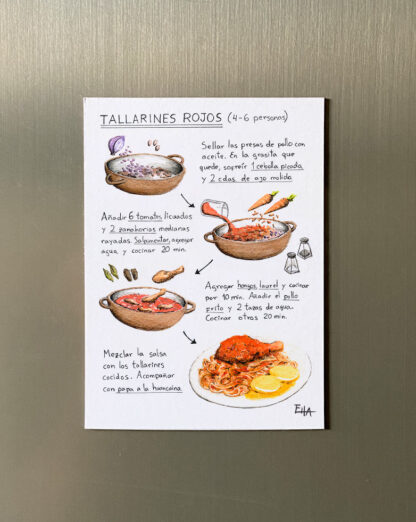 TALLARINES ROJOS (4-6 personas)
Sellar las presas de pollo con
aceite. En la grasita que
quede, sofreír 1 cebolla picada
y 2 cdas. de ajo molido.
Añadir 6 tomates licuados
y 2 zanahorias medianas
rayadas. Salpimentar, agregar
agua y cocinar 20 min.
Agregar hongos, laurel y cocinar
por 10 min. Añadir el pollo
frito y 2 tazas de agua.
Cocinar otros 20 min.
Mezclar la salsa
con los tallarines
cocidos. Acompañar
con papa a la huancaína.